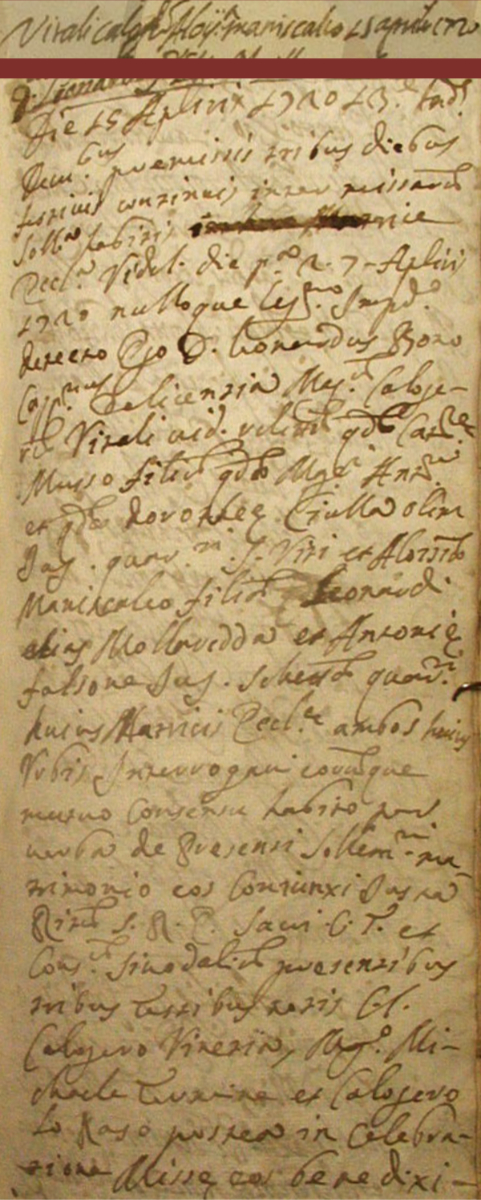 Vitali caloj.s Aloÿ.a maniscalco 15 aprilis 1720
Die 15 Aprilis 1720 13.e Ind.s
Denu.bus premissis tribus diebus
festivis continuis inter missarum
Soll.a habitis
Eccl.a Videl. die p.o 2. 7 Aprilis
1720 nulloque leg.mo Imp.o
detecto Ego D. Leonardus Bono
Cap.nus de licentia Mag.m Caloje-
rum Vitali vid. relictum qdm Cat.ae
Musso filium qdm Mag.i Ant.ni
et qdm Dorotheę Ciulla olim
Jug. quar.m S. Viti et Aloisiam
Maniscalco filiam Leonardi
alias Mollavedda et Antonię
falsone Jug. Schettam quar.m
huius Matricis Eccl.ae ambos huius
Urbis Interrogavi eorumque
mutuo consensu habito per
verba de Presenti Sollem.r ma-
trimonio eos Coniunxi Juxta
Ritum S. R. E. Sacri C. T. et
Cons.m Sinodalium presentibus
tribus testibus notis Cl.
Calojero Vineria, Mag.o Mi-
chaele Terrana et Calogero
Lo Raso postea in Celebra-
tione Missę eos benedixi-